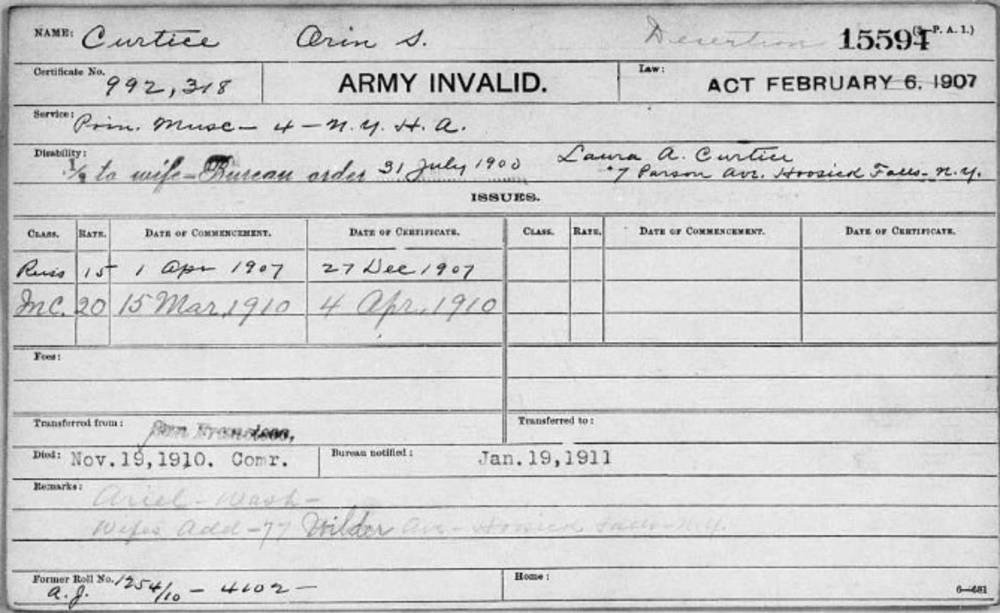 NAME: Curtice Orin S. Desertion 15594 P. A. I.)
Certificate No. 992,318 ARMY INVALID. Law: ACT FEBRUARY 6, 1907
Service: Prin. Musc - 4 - N.Y. H. A.
Disability: 1/2 to wife - Bureau order 31 July 1900 Laura A. Curtice
7 Parson Ave. Hoosick Falls - N.Y.
ISSUES.
CLASS. RATE. DATE OF COMMENCEMENT. DATE OF CERTIFICATE. CLASS. RATE. DATE OF COMMENCEMENT. DATE OF CERTIFICATE.
15 1 Apr 1907 27 Dec 1907
INC. 20 15 Mar, 1910 4 Apr, 1910
Fees:
Transferred from: San Francisco, Transferred to:
Died: Nov. 19, 1910. Comr. Bureau notified: Jan. 19, 1911
Remarks: Ariel - Wash -
Wifes Add - 77 Wilder Ave - Hoosick Falls - N.Y.
Former Roll No. 1254/10 - 4102 - Home:
A. J. 6-681